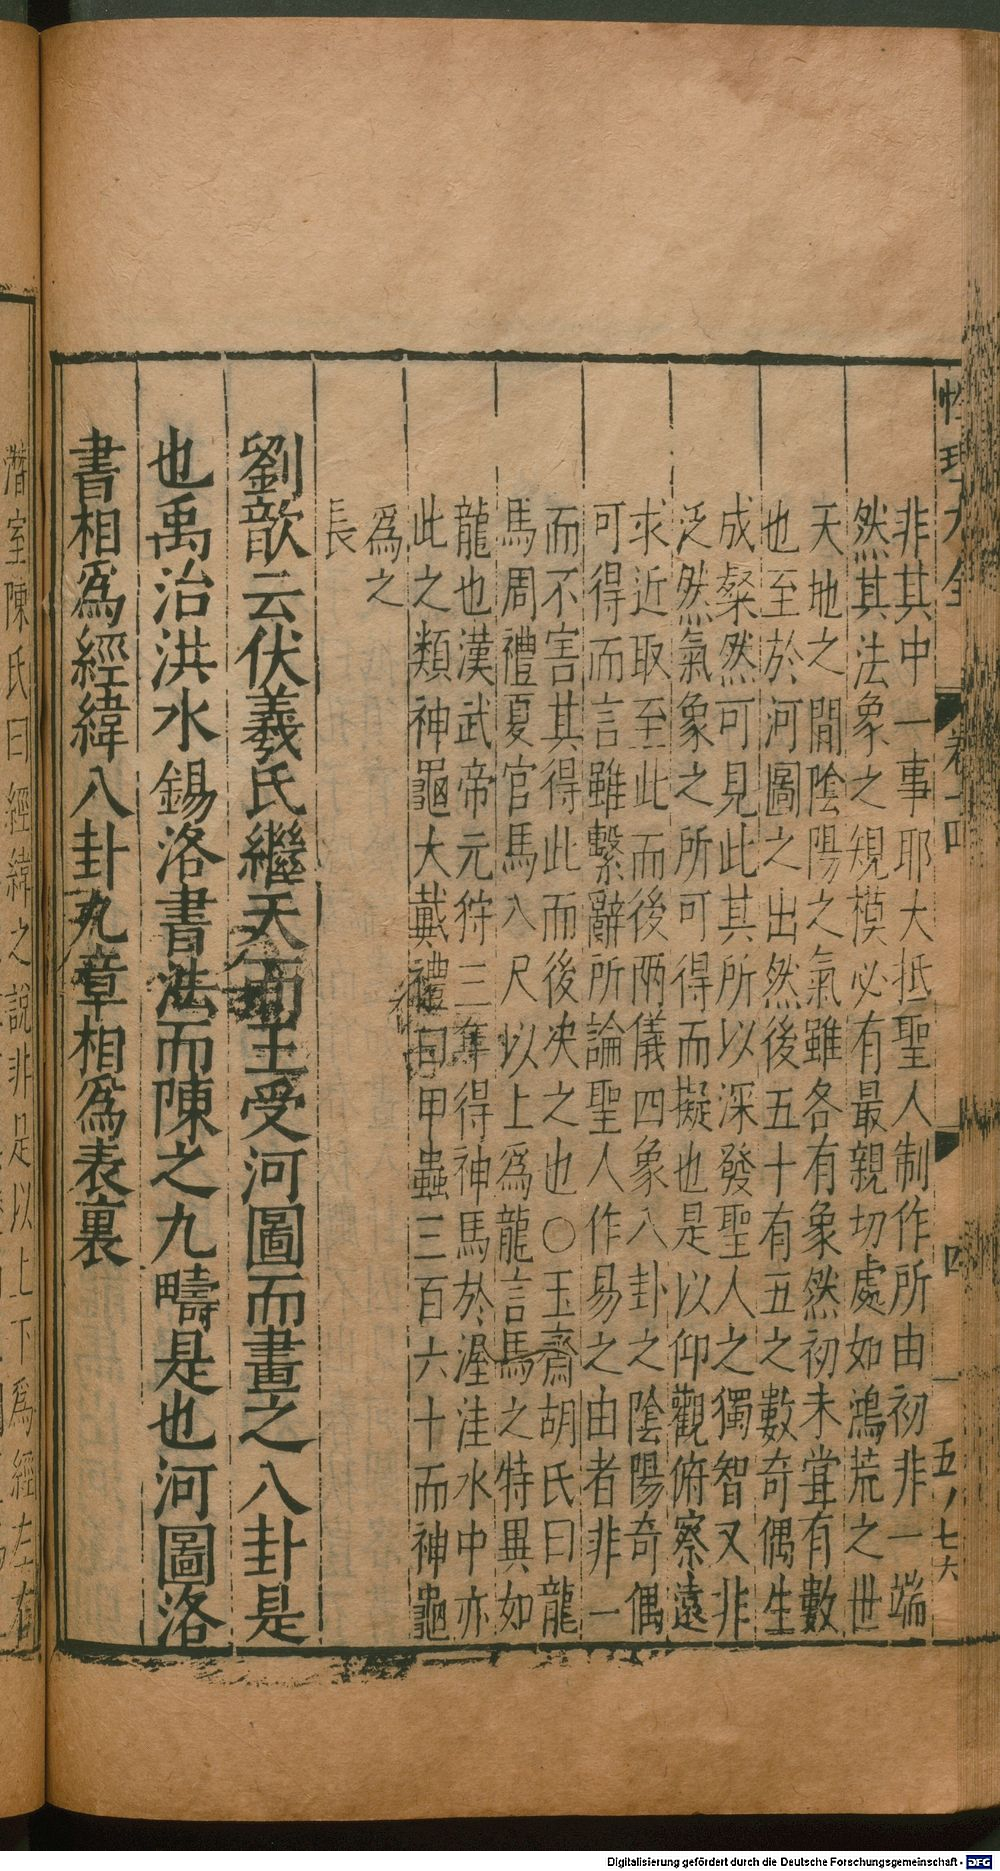 性理大全
卷十四
四
五ノ七六
非其中一事耶大抵聖人制作所由初非一端
然其法象之規模必有最親切處如鴻荒之世
天地之間陰陽之氣雖各有象然初未甞有數
也至於河圖之出然後五十有五之數奇偶生
成粲然可見此其所以深發聖人之獨智又非
泛然氣象之所可得而擬也是以仰觀俯察遠
求近取至此而後兩儀四象八卦之陰陽奇偶
可得而言雖繫辭所論聖人作易之由者非一
而不害其得此而後决之也〇玉齋胡氏曰龍
馬周禮夏官馬八尺以上爲龍言馬之特異如
龍也漢武帝元狩三年得神馬於渥洼水中亦
此之類神龜大戴禮曰甲蟲三百六十而神龜
爲之
長
劉歆云伏羲氏繼天而王受河圖而畫之八卦是
也禹治洪水錫洛書法而陳之九疇是也河圖洛
書相爲經緯八卦九章相爲表裏
潛室陳氏曰經緯之說非是以上下爲經左右
Digitalisierung gefördert durch die Deutsche Forschungsgemeinschaft - DFG